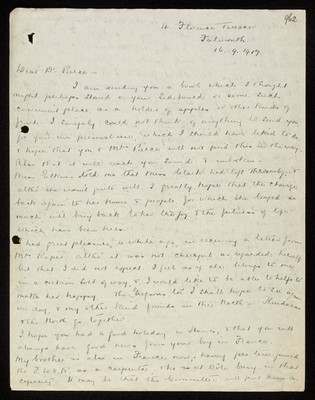 962
4 Florence Terrace
Falmouth
16.9.1917.
Dear Dr. Pierce –
I am sending you a book which I thought
might perhaps stand on your sideboard or some such
convenient place as a holder of apples or other kinds of
fruit. I simply could not think of anything to send you
for your own personal use, which I should have liked to do
& hope that you & Mrs Pierce will not find this in the way.
Also that it will reach you sound & unbroken –
Miss told me that Miss had left
altho' she wasn't quite well. I greatly hope that the change
back again to her home & people for which she longed so
much will bring back to her the joy & the fulness of life
which have been hers.
I had great pleasure, a while ago, in receiving a letter from
Mrs altho' it was not cheerful as regarded herself
but that I did not expect. I feel as if she belongs to me
in a certain sort of way, & I would like to be able to help to
make her happy. I shall hope to see again
one day, & my other kind friends in the North –
& the North go together
I hope you had a good holiday in & that you will
always have good news from your boy in France.
My brother is also in France now, having joined
the F.W.V.R. as a carpenter, & is at busy in that
capacity. It may be that the Committee will